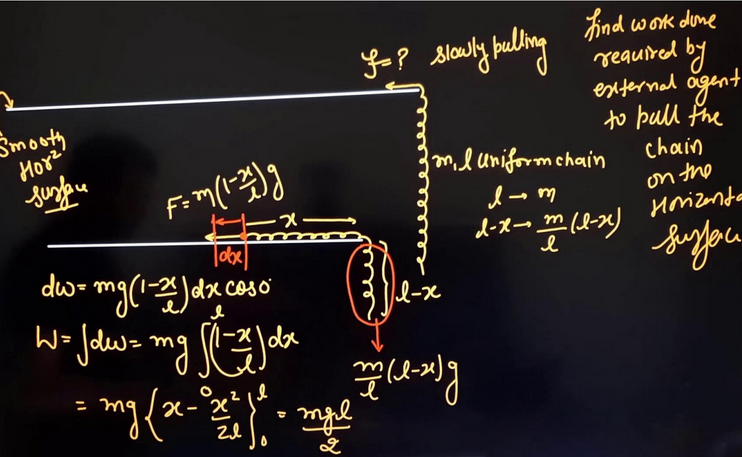 f=? slowly pulling
find work done
required by
external agent
to pull the
chain
on the
Horizonta
surface
Smooth
Horz
surface
m, l uniform chain
l → m
l-x → m/l (l-x)
F= m(1-x/l)g
x
dx
l-x
m/l (l-x)g
dw= mg(1-x/l)dx cos0
W= ∫dw= mg ∫₀ˡ(1-x/l)dx
= mg{x - x²/2l}₀ˡ = mgl/2